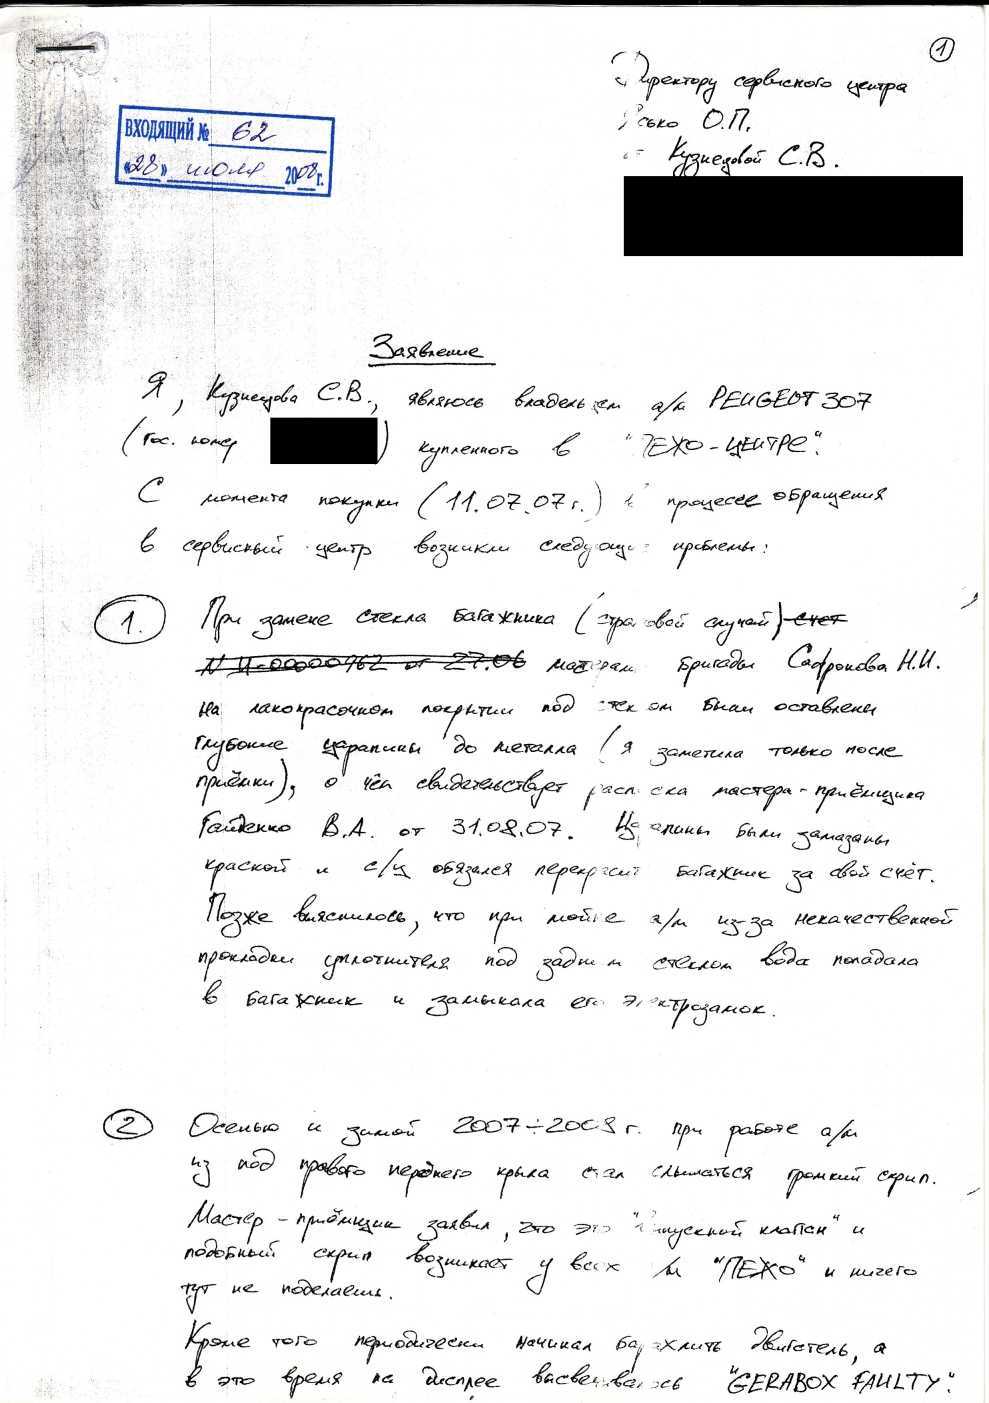 1
Директору сервисного центра
О.П.
Кузнецовой С.В.
ВХОДЯЩИЙ № 62
«28» июля 2008 г.
Заявление
Я, Кузнецова С.В., являюсь владельцем а/м PEUGEOT 307
(гос. номер ) купленного в "ПЕЖО-ЦЕНТРЕ".
С момента покупки (11.07.07г.) в процессе обращения
в сервисный центр возникли следующие проблемы:
1. При замене стекла багажника (страховой случай) счет
N И-00000962 от 27.06 мастерам бригады Сафронова Н.И.
на лакокрасочном покрытии под стеклом были оставлены
глубокие царапины до металла (я заметила только после
приёмки), о чём свидетельствует расписка мастера-приёмщика
Гайденко В.А. от 31.08.07. Царапины были замазаны
краской и с/ц обязался перекрасить багажник за свой счёт.
Позже выяснилось, что при мойке а/м из-за некачественной
прокладки уплотнителя под задним стеклом вода попадала
в багажник и замыкала его электрозамок.
2 Осенью и зимой 2007÷2008 г. при работе а/м
из под правого переднего крыла стал слышаться громкий скрип.
Мастер-приёмщик заявил, что это "впускной клапан" и
подобный скрип возникает у всех а/м "ПЕЖО" и ничего
тут не поделаешь.
Кроме того периодически начинал барахлить двигатель, а
в это время на дисплее высвечивалось "GERABOX FAULTY".